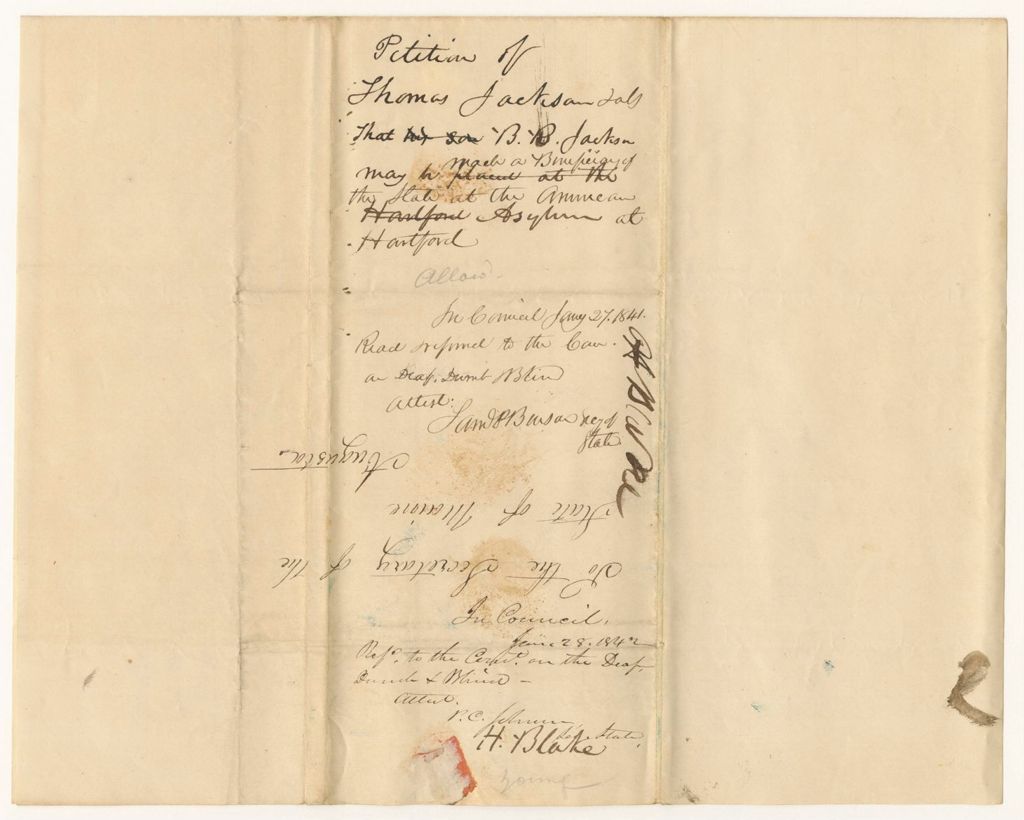 Petition of
Thomas Jackson
That his son B. B. Jackson
may be placed at the
made a Beneficiary of
the State at the American
Hartford Asylum at
Hartford
Allow.
In Council Jany 27. 1841.
Read & referred to the Com.
on Deaf, Dumb & Blind
Attest:
Saml P Benson Secy of
State
To the Secretary of the
State of Maine
Augusta
In Council,
Jan. 28. 1842
Ref. to the Comt. on the Deaf,
Dumb & Blind –
Attest.
P. C. Johnson
Sec State.
H. Blake